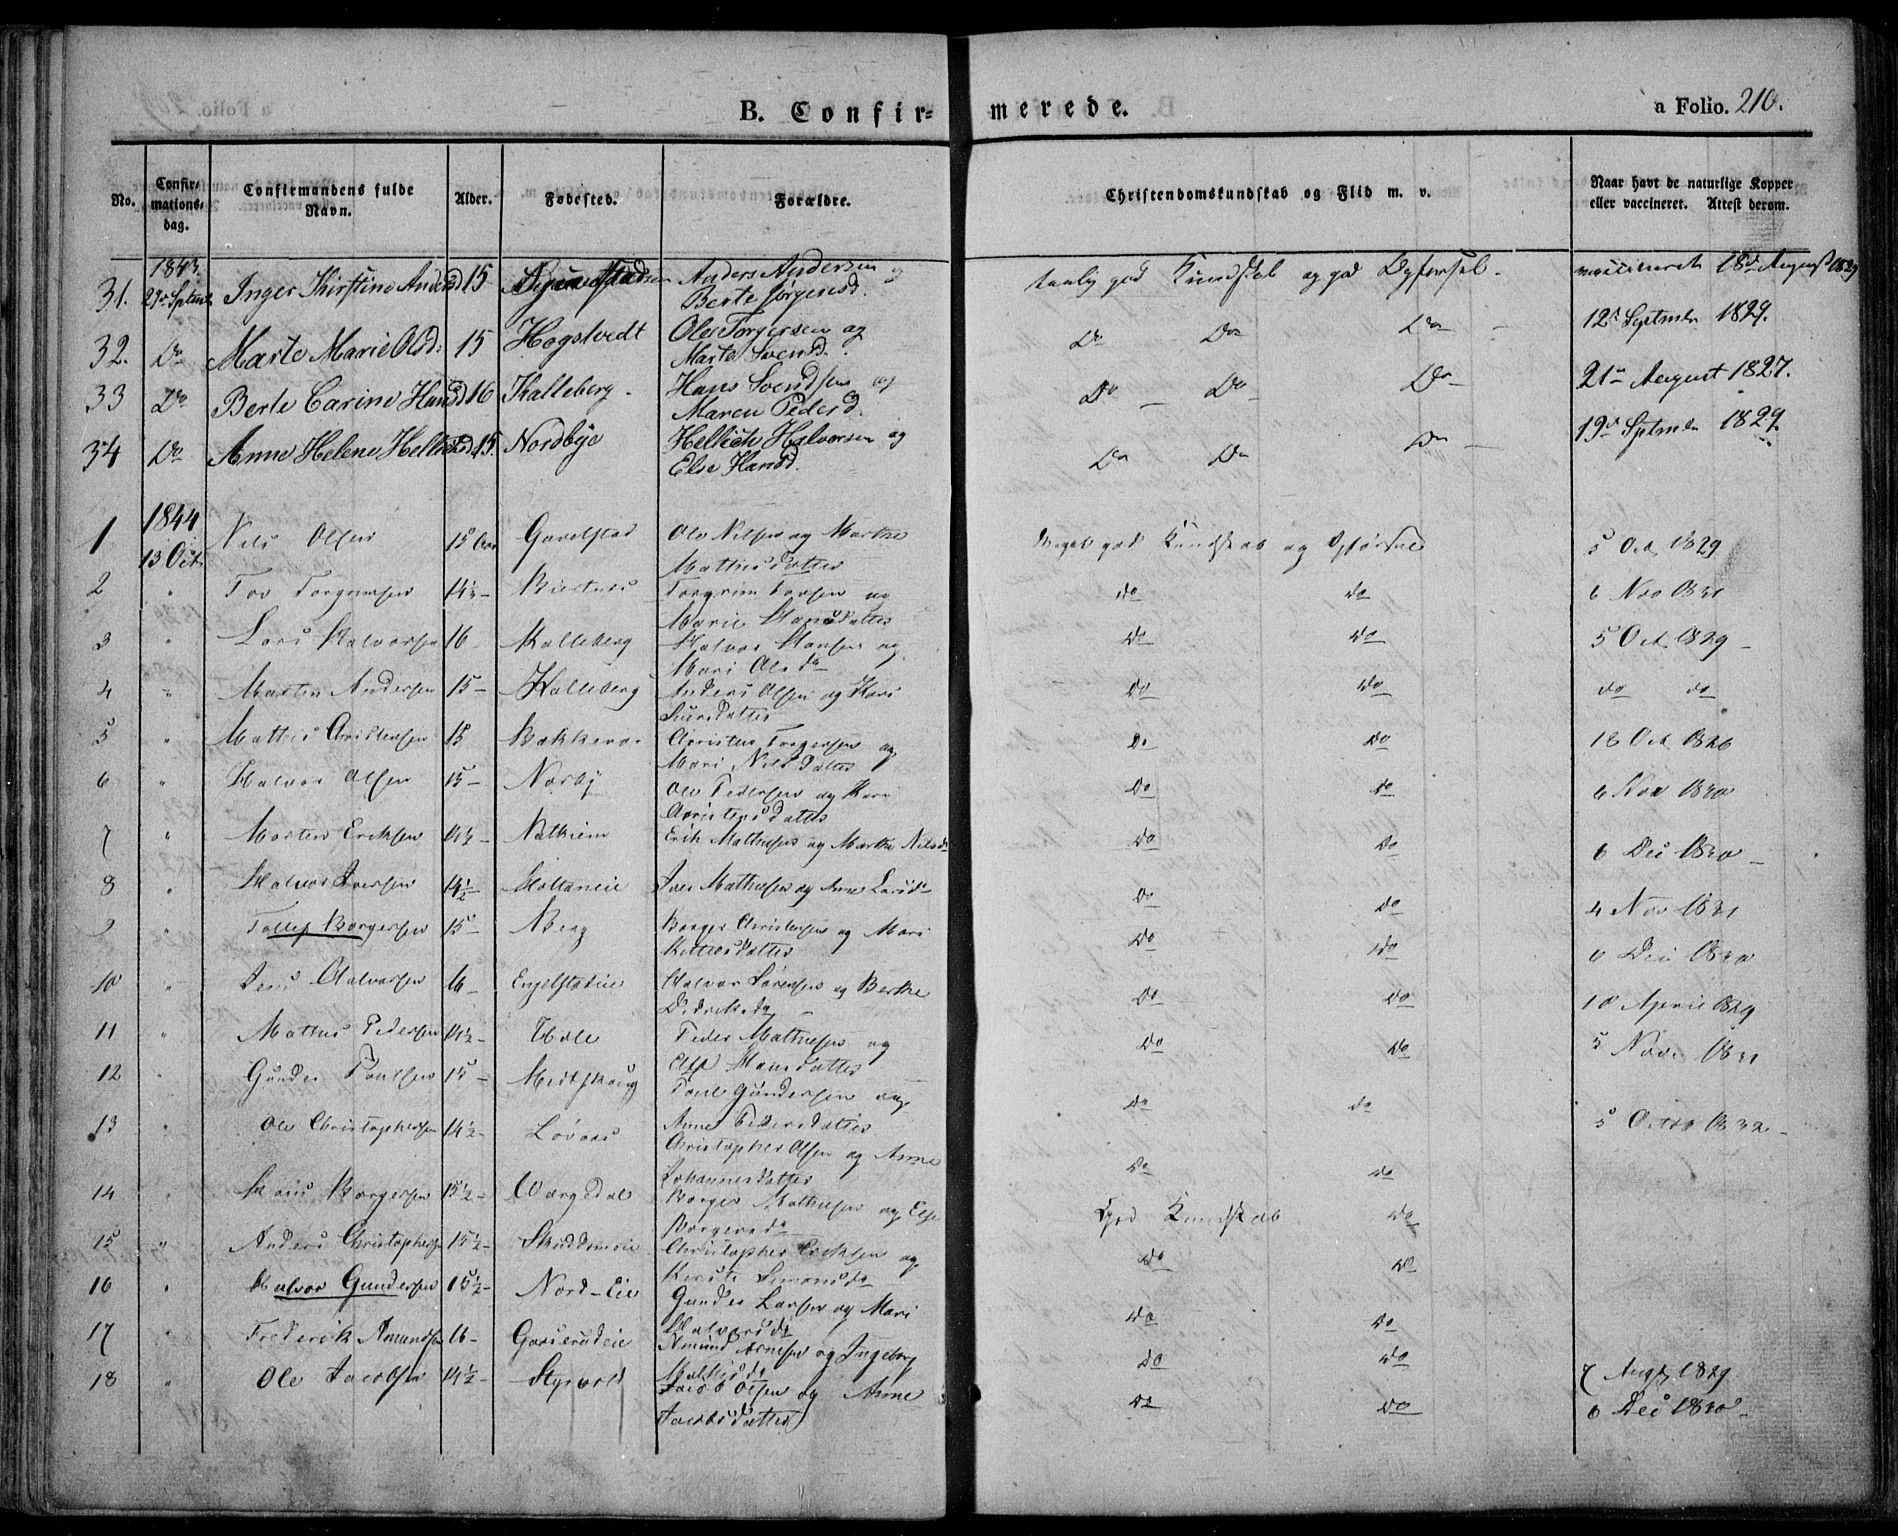 B. Confir- merede. a Folio. 210.
No. Confir-mations-dag. Confirmandens fulde Navn. Alder. Fødested. Forældre. Christendomskundskab og Flid m. v. Naar havt de naturlige Kopper eller vaccineret. Attest derom.
1843.
31. 29de Septmbr Inger Kirstine Andersd 15 Anders Andersen og god Kundskab og god Opførsel. vaccineret 18de August 1829
Berte Jørgensd.
32. Do Marte Marie Olsd: 15 Hogstvedt Olea Torgersen og Do Do Do 12te Septmbr 1829.
Marte Svensd.
33 Do Berte Carine Hansd 16 Kalleberg. Hans Svendsen og Do Do Do 21de August 1827.
Maren Pedersd.
34 Do Anne Helene Hellesd. 15. Nordbye Hellich Halvorsen og Do Do Do 19de Septmbr 1829.
Else Hansd.
1844
1 13 Oct Nils Olsen 15 Aar Gavelstad Ole Nilsen og Marthe Meget god Kundskab og Opførsel 5 Oct 1829
Mathisdatter
2 " Tov Torgrimsen 14½ Torgrim Tovsen og do do 6 Nov 1831
Marie Hansdatter
3 " Lars Halvorsen 16 Kalleberg Halvor Hansen og do do 5 Oct 1829
Mari Olsda
4 " Martin Andersen 15 Kalleberg Anders Olsen og Kari do do do do
Siversdatter
5 " Mathis Christensen 15 Bakkerar Christen Torgersen og Do Do 18 Oct 1826
Mari Nilsdatter
6 " Halvor Olsen 15 Norby Ole Pedersen og Kari Do do 6 Nov 1830
Christensdatter
7 " Morten Eriksen 14½ Natkiem Erik Mathisen og Marthe Nilsda Do Do 6 Dec 1830
8 " Halvor Iversen 14½ Holtaneie Iver Mathisen og Anne Larsda Do Do 4 Nov 1831
9 " Tollef Borgersen 15 Berg Borger Christensen og Mari Do Do 6 Dec 1830
Kittilsdatter
10 " Jens Halvorsen 16 Engelstadeie Halvor Sørensen og Berthe Do Do 10 April 1829
Didriksda
11 " Mathis Pedersen 14½ Hole Peder Mathisen og Do Do 5 Nov 1831
Else Hansdatter
12 " Gunder Poulsen 15 Midtskoug Poul Gundersen og Do Do
Anne Pedersdatter
13 " Ole Christophersen 14½ Løvaas Christopher Olsen og Anne Do Do 5 October 1832
Johannesdatter
14 " Hans Borgersen 15½ Vargedal Borger Mathisen og Else God Kundskab Do
Borgersda
15 " Anders Christophersen 15½ Christopher Eriksen og Do Do
Kirste Simonsda
16 " Halvor Gundersen 15½ Nord-Eie Gunder Larsen og Mari Do Do
Halvorsda
17 " Frederik Amundsen 16 Gaaserudeie Amund Arnesen og Ingeborg Do Do 7 Aug 1829
Mathisda
18 " Ole Jacobsen 14½ Styrvold Jacob Olsen og Anne Do Do 6 Dec 1830
Jacobsdatter